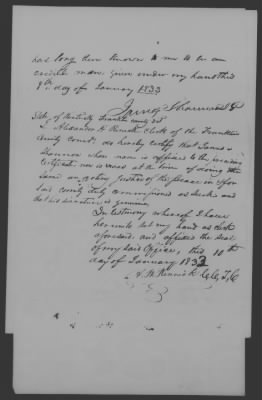 has long been known to me to be an
credible man, given under my hand this
9th day of January 1833
James Shannon JP
State of Kentucky Franklin County Sct
I Alexander H Rennick clerk of the Franklin
County Court, do hereby certify that James
Shannon whose name is affixed to the preceding
Certificate now is & was at the time of doing the
same an acting Justice of the peace in & for
said County duly commissioned as such and
that his signature is genuine
In testimony whereof I have
hereunto set my hand as clerk
aforesaid, and affixed the seal
of my said Office, this 10th
day of January 1833
A. H. Rennick C,C,F,C